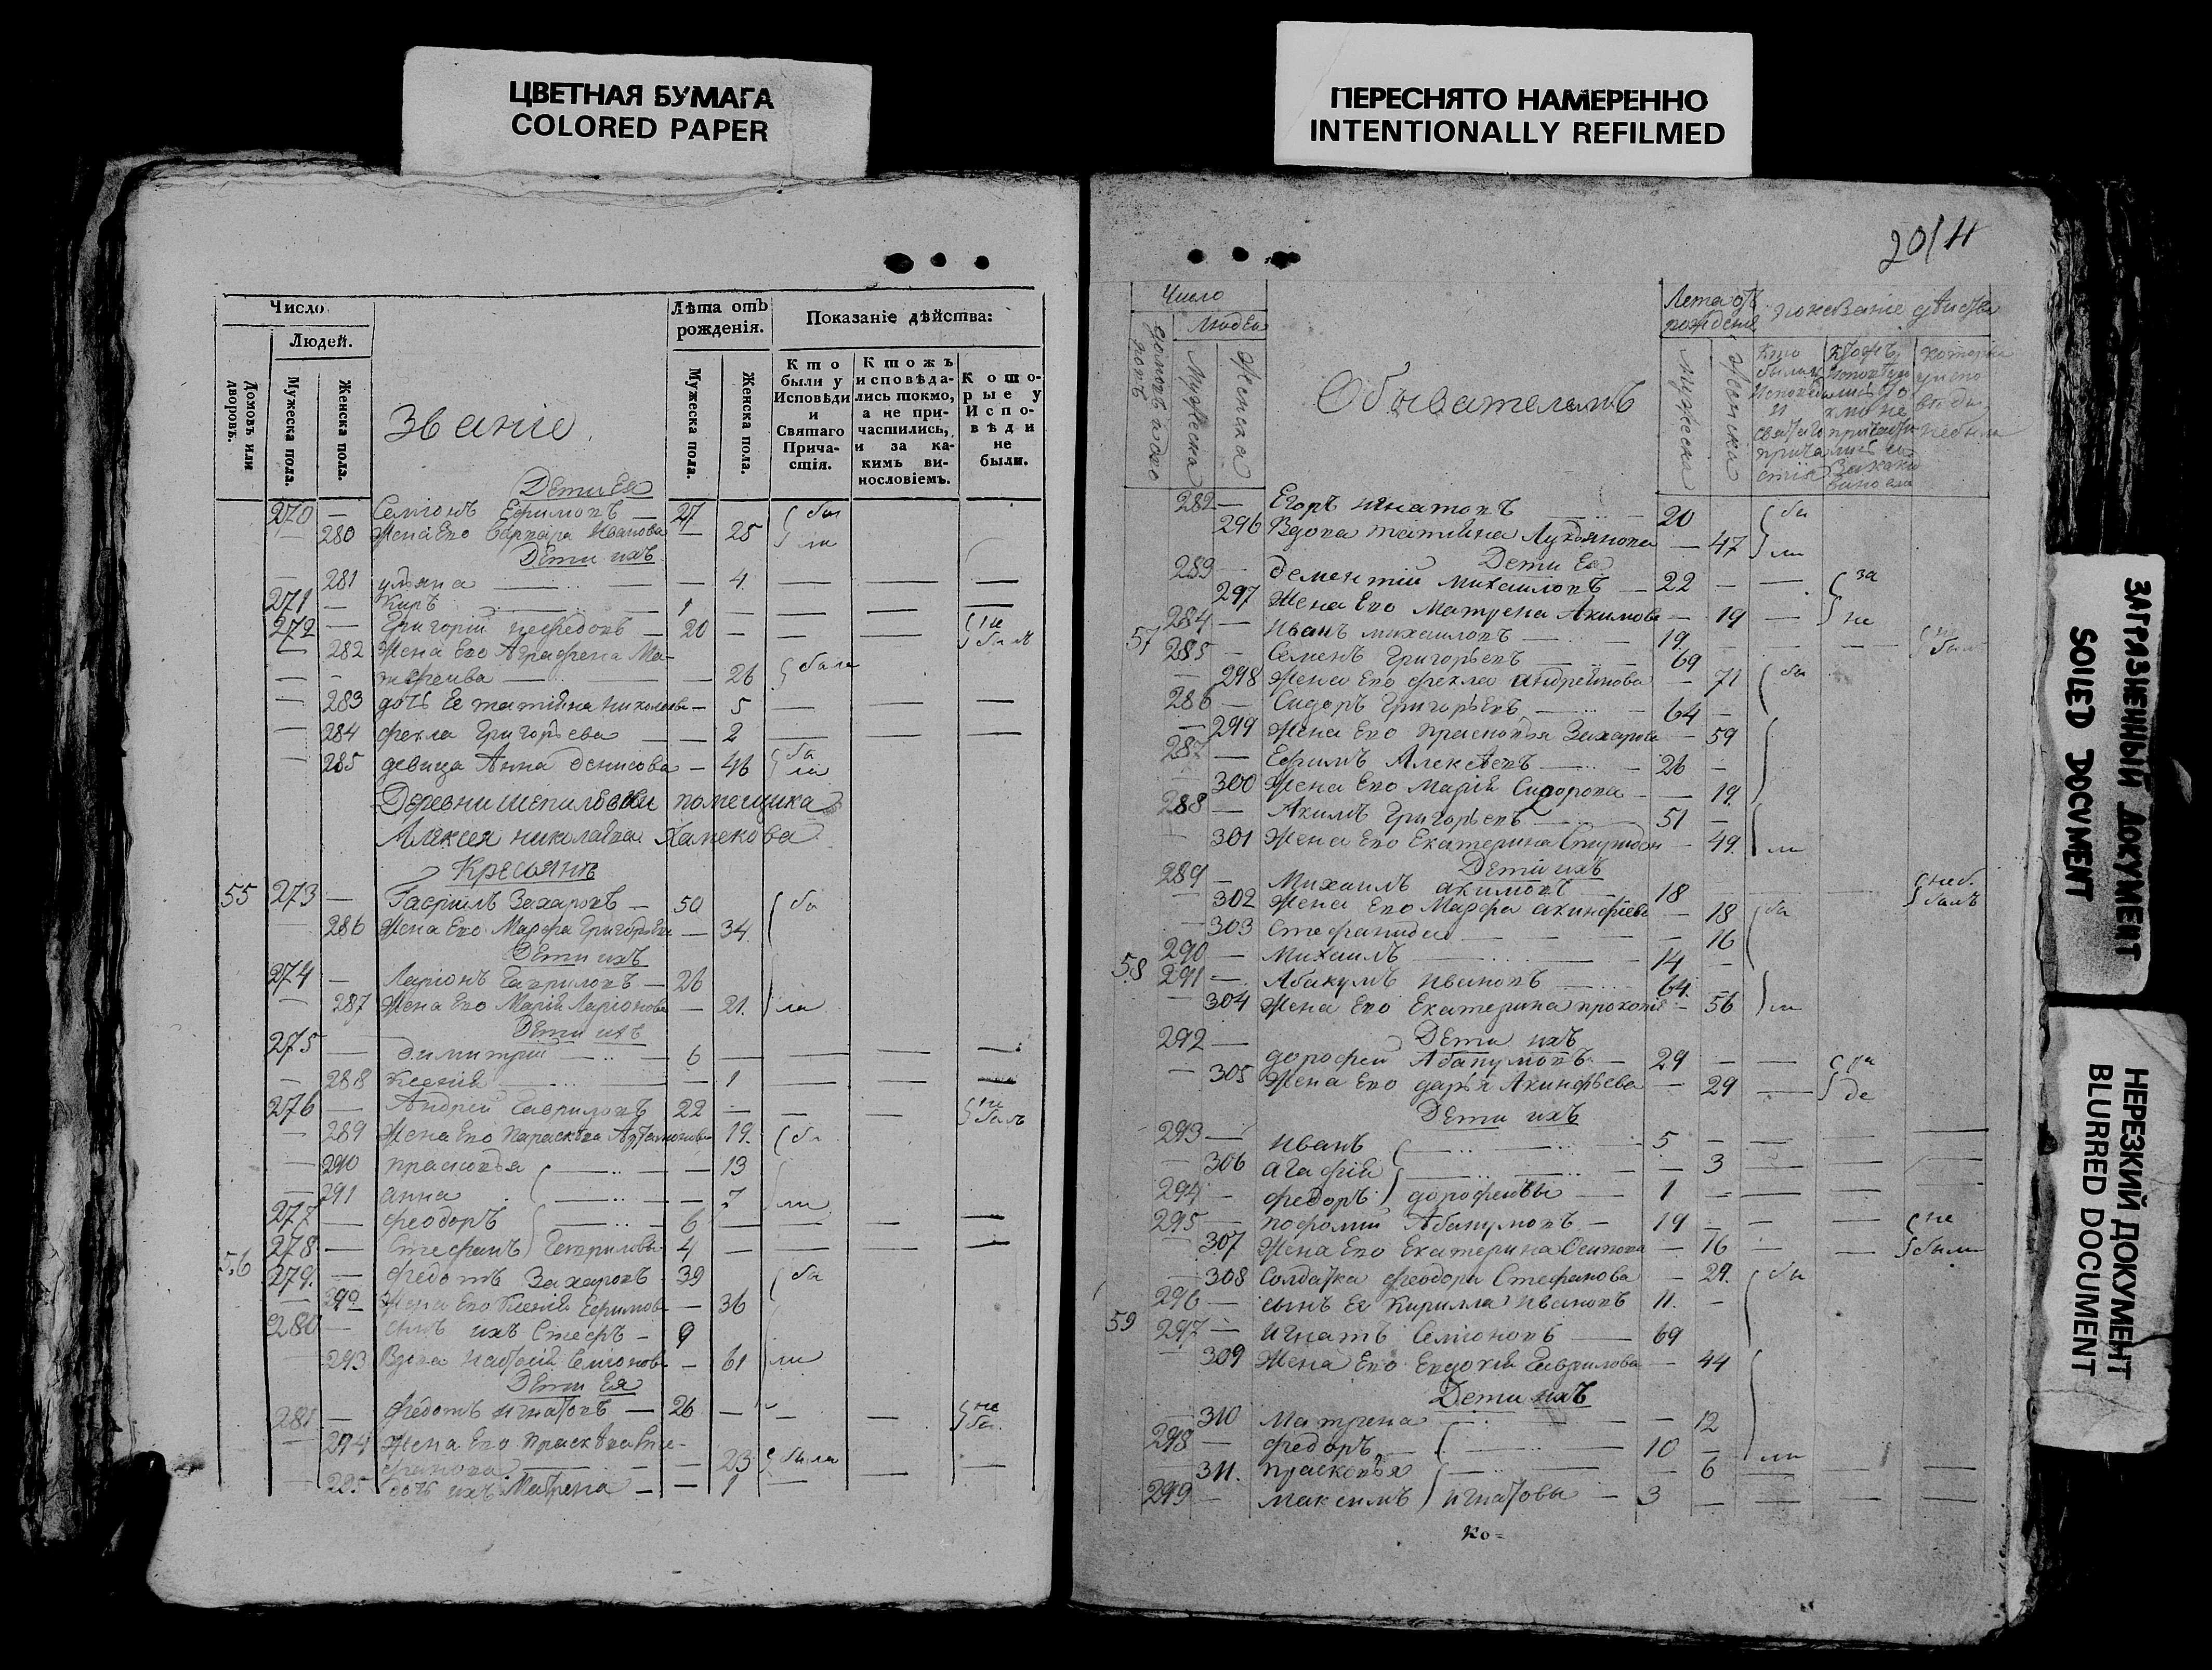 ЦВЕТНАЯ БУМАГА
COLORED PAPER
ПЕРЕСНЯТО НАМЕРЕННО
INTENTIONALLY REFILMED
ЗАГРЯЗНЕННЫЙ ДОКУМЕНТ
SOILED DOCUMENT
НЕРЕЗКИЙ ДОКУМЕНТ
BLURRED DOCUMENT
Число
Людей.
Домовъ или дворовъ.
Мужеска пола.
Женска пола.
Званіе
Лѣта отъ рожденія.
Мужеска пола.
Женска пола.
Показаніе дѣйства:
Кто были у Исповѣди и Святаго Причастія.
Ктожъ исповѣдались токмо, а не причастились, и за какимъ винословіемъ.
Которые у Исповѣди не были.
Дети Ея
270 — Семіонъ Ефимовъ — 27 бы
— 280 Жена Его Варвара Иванова — 25 ли
Дети ихъ
— 281 ульяна — 4 — — —
271 — Киръ — 1 — — —
272 — Григорій нефедовъ — 20 — — — не былъ
— 282 Жена Его Аграфена Ма-
— — — 26 была
— 283 дочь Ее татіяна николаева — 5 — — —
— 284 фекла Григорьева — 2 — — —
— 285 девица Анна денисова — 46 бы ла
Деревни шепиловки помещика
Алексея николаева
Кресьянъ
55 273 — Гаврилъ Захаровъ — 50 бы
286 Жена Его Марфа Григорьева — 34
Дети ихъ
274 — Ларіонъ Гавриловъ — 26
— 287 Жена Его Марія Ларіонова — 21. ли
Дети ихъ
275 — димитрій — 6 — — — —
— 288 Ксенія — 1 — — —
276 — Андрей Гавриловъ 22 — — — не былъ
— 289 Жена Его Параскева — 19. бы
— 290 прасковья — 13
— 291 анна — 7 ли
277 — феодоръ — 6 — — — —
278 — Стефанъ Гавриловы 4 — — — —
56 279. — федотъ Захаровъ 39 бы
— 292 Жена Его Ксенія Ефимова — 36
280 — сынъ ихъ — 9
293 Вдова Семіонова — 61 ли
Дети Ея
281 — федотъ игнатовъ — 26 — — — не бы.
— 294 Жена Его Прасковья Сте-
фанова — 23 была
— 295 дочь ихъ Матрена — — 1 — — —
20/11
Число
Людей
Мужеска
Женска
Обывателемъ
Лета отъ рожденія
Мужеска
Женска
282 — Егоръ игнатовъ — 20 бы
296 Вдова татіяна Лукьянова — 47 ли
Дети Ея
283 — дементій михаиловъ — 22 — — за
297 Жена Его Матрена Акимова — 19 — не
284 — иванъ михаиловъ — 19.
57 285 — Семенъ Григорьевъ — 69
298 Жена Его фекла андреянова — 71 бы
286 — Сидоръ Григорьевъ — 64 —
— 299 Жена Его Прасковья Захарова — 59
287 — Ефимъ Алексеевъ — 26 —
— 300 Жена Его Марія Сидорова — 19.
288 — Акимъ Григорьевъ — 51 —
— 301 Жена Его Екатерина — 49. ли
Дети ихъ
289 — Михаилъ акимовъ — 18
— 302 Жена Его Марфа акинфіева — 18 бы
— 303 Стефанида — 16
290 — Михаилъ — 14 —
58 291 — Абакумъ ивановъ — 64. —
— 304 Жена Его Екатерина прокопіе — 56 ли
Дети ихъ
292 — дорофей Абакумовъ — 29 — —
— 305 Жена Его дарья Акинфьева — 29 —
Дети ихъ
293 — иванъ — 5 — — — —
306 агафія — 3 — — —
294 — федоръ дорофеевы — 1 — — — —
295 — Абакумовъ — 19 — — — не
307 Жена Его Екатерина Осипова — 16 — — были
308 Солдатка феодора Стефанова — 29. бы
296 — сынъ Ея Кирилла ивановъ 11. —
59 297 — игнатъ Семіоновъ — 69
309 Жена Его Евдокія Гаврилова — 44
Дети ихъ
— 310 Матрена — 12
298 — федоръ — 10 — ли
311. прасковья — 6 — — —
299 — максимъ игнатовы — 3 — — — —
Ко=